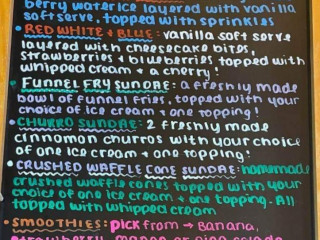 berry waterice layered with vanilla
softserve, topped with sprinkles
• RED WHITE & BLUE: vanilla soft serve
layered with cheesecake bites,
strawberries + blueberries topped with
whipped cream + a cherry!
• FUNNEL FRY SUNDAE: a freshly made
bowl of funnel fries, topped with your
choice of ice cream + one topping!
• CHURRO SUNDAE: 2 freshly made
cinnamon churros with your choice
of ice cream + one topping!
• CRUSHED WAFFLE CONE SUNDAE: homemade
crushed waffle cones topped with your
choice of ice cream + one topping. All
topped with whipped cream
• SMOOTHIES: pick from → Banana,
strawberry, mango or pina colada